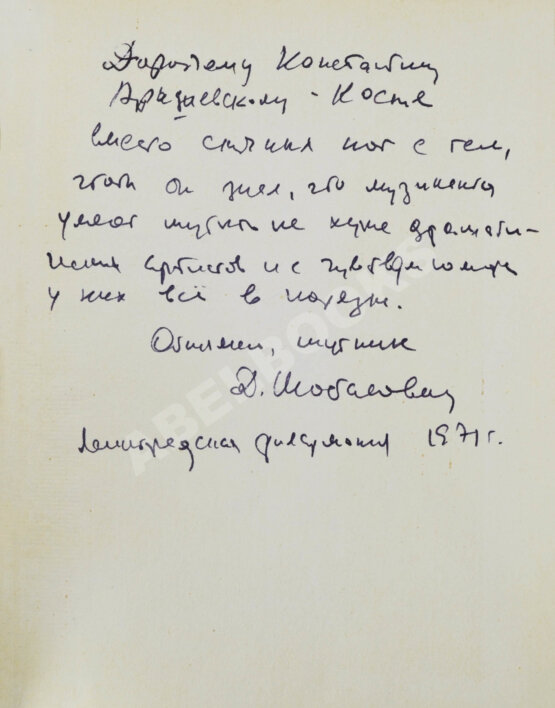 Дорогому Константину
- Косте
вместо скучных нот с тем,
чтобы он знал, что музыканты
умеют шутить не хуже драмати-
ческих артистов и с чувством юмора
у них всё в порядке.
Обнимаю, шутник
Д.
Ленинградская филармония 1971 г.
ABELBOOKS